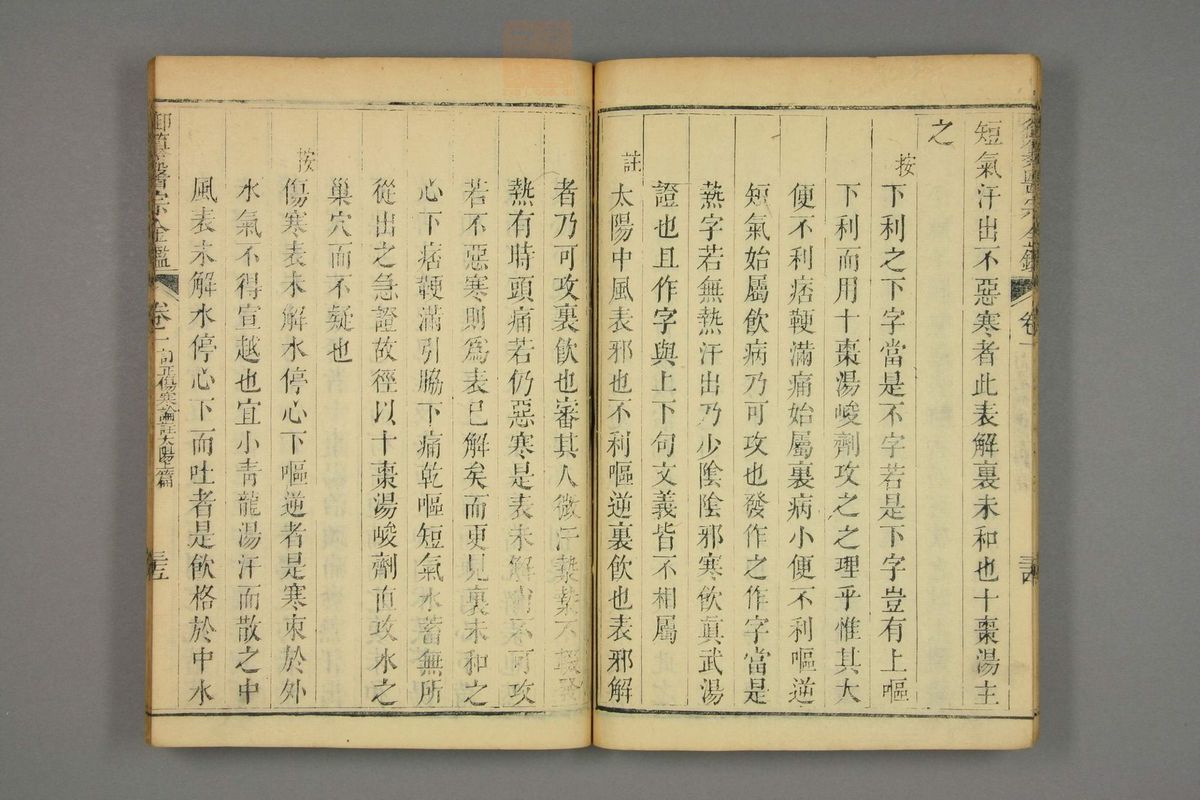 短氣汗出不惡寒者此表解裏未和也十棗湯主
之
按
下利之下字當是不字若是下字豈有上嘔
下利而用十棗湯峻劑攻之之理乎惟其大
便不利痞鞕滿痛始屬裏病小便不利嘔逆
短氣始屬飲病乃可攻也發作之作字當是
熱字若無熱汗出乃少陰陰邪寒飲眞武湯
證也且作字與上下句文義皆不相屬
註
太陽中風表邪也不利嘔逆裏飲也表邪解
者乃可攻裏飲也審其人微汗漐漐不輟發
熱有時頭痛若仍惡寒是表未解尚不可攻
若不惡寒則爲表已解矣而更見裏未和之
心下痞鞕滿引脇下痛乾嘔短氣水蓄無所
從出之急證故徑以十棗湯峻劑直攻水之
巢穴而不疑也
按
傷寒表未解水停心下嘔逆者是寒束於外
水氣不得宣越也宜小靑龍湯汗而散之中
風表未解水停心下而吐者是飲格於中水
御纂醫宗金鑑
卷一
訂正傷寒論註太陽上篇
三五